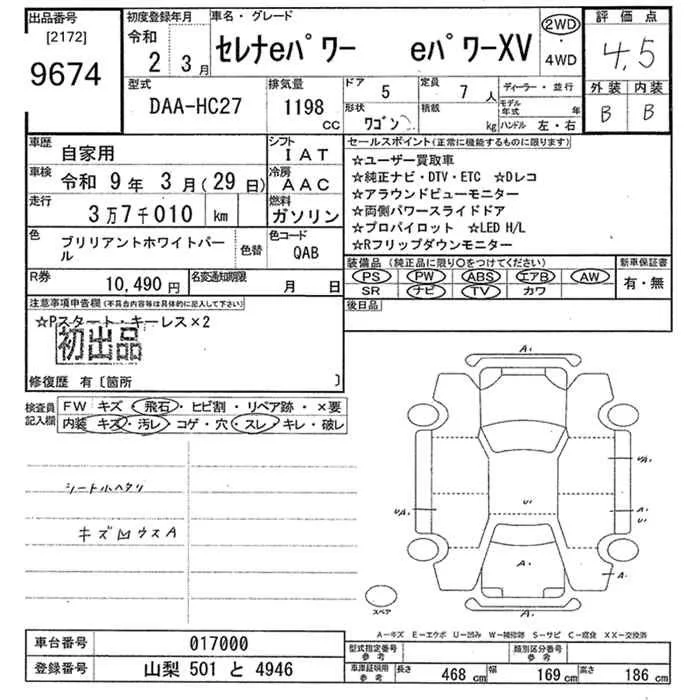 出品番号
[2172]
9674
初度登録年月
令和
2 3月
車名・グレード
セレナeパワー eパワーXV
2WD
・
4WD
評価点
4.5
外装 内装
B B
型式
DAA-HC27
排気量
1198
cc
ドア
5
定員
7 人
形状
ワゴン
積載
kg
ディーラー・並行
モデル年式 年
ハンドル 左・右
車歴
自家用
シフト
IAT
車検
令和 9年 3月(29日)
冷房
AAC
走行
3万7千010 km
燃料
ガソリン
色
ブリリアントホワイトパール
色替
色コード
QAB
R券
10,490 円
名変通知期限
月 日
セールスポイント(正常に機能するものに限ります)
☆ユーザー買取車
☆純正ナビ・DTV・ETC ☆Dレコ
☆アラウンドビューモニター
☆両側パワースライドドア
☆プロパイロット ☆LED H/L
☆Rフリップダウンモニター
装備品(純正品に限り〇をつけてください)
PS PW ABS エアB AW
SR ナビ TV カワ
新車保証書
有・無
後日品
注意事項申告欄(不具合内容等は具体的に記入して下さい)
☆Pスタート・キーレス×2
初出品
修復歴 有〔箇所 〕
検査員記入欄
FW キズ・飛石・ヒビ割・リペア跡・×要
内装 キズ・汚レ・コゲ・穴・スレ・キレ・破レ
シート小ヘタリ
キズ凹ウスA
A₁
UA₁
UA₁
U₁
A₁
U₁
A₁
A₁
A₁
スペア
A−キズ E−エクボ U−凹み W−補修跡 S−サビ C−腐食 XX−交換済
車台番号
017000
登録番号
山梨 501 と 4946
型式指定番号
参考
類別区分番号
参考
車庫証明用
参考
長さ 468 cm
幅 169 cm
高さ 186 cm